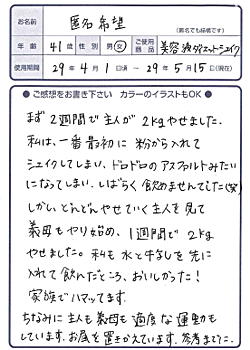 お名前 匿名希望
(匿名でも結構です)
年齢 41才 性別 男・女 ご使用商品 美容液ダイエットシェイク
使用期間 29年4月1日頃〜29年5月15日(現在)
●ご感想をお書き下さい カラーのイラストもOK●
まず2週間で主人が2kgやせました。
私は、一番最初に粉から入れて
シェイクしてしまい、ドロドロのアスファルトみたい
になってしまい、しばらく飲めませんでした(笑)
しかし、どんどんやせていく主人を見て
義母もやり始め、1週間で2kg
やせました。私も水と牛乳を先に
入れて飲んだところ、おいしかった!
家族でハマってます。
ちなみに主人も義母も適度な運動も
しています。お尻を置きかえています。参考までに…